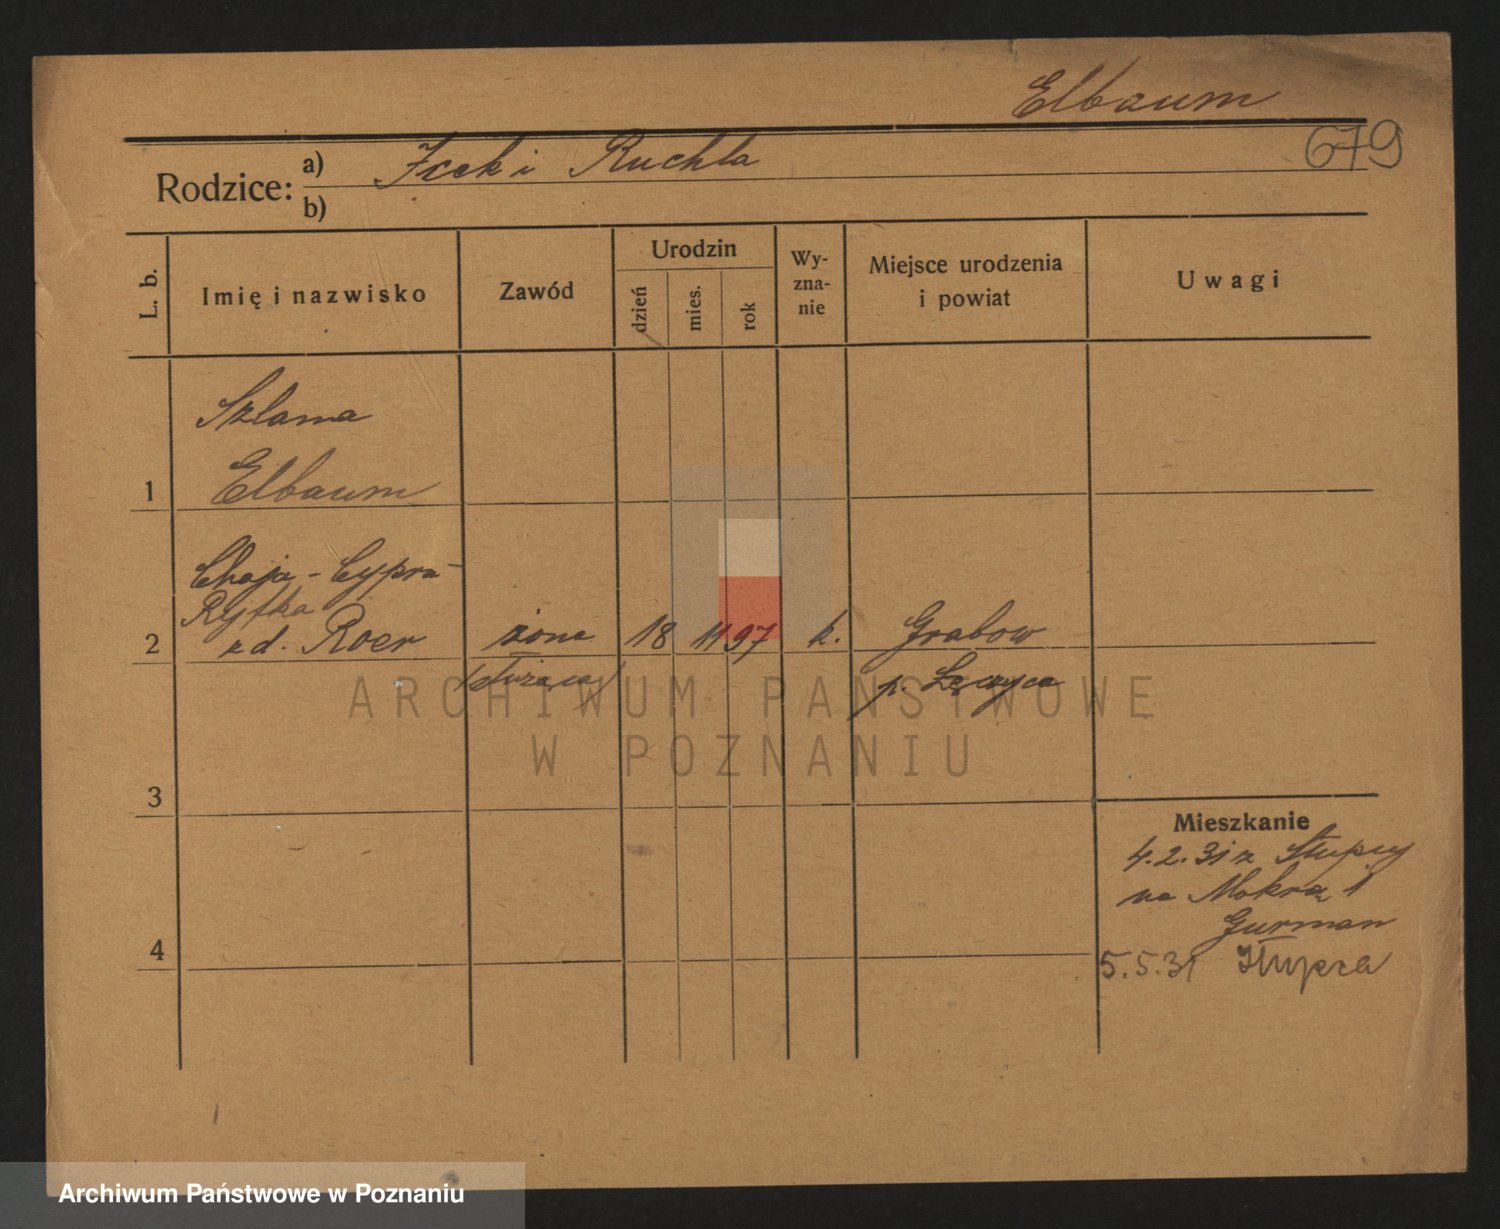 Elbaum
679
Rodzice: a) Icek i Ruchla
b)
L. b.
Imię i nazwisko
Zawód
Urodzin
dzień
mies.
rok
Wy-
zna-
nie
Miejsce urodzenia
i powiat
Uwagi
Szlama
1 Elbaum
Chaja - Cypra -
Ryfka
2 z d. Roer żona 18 11 97 Grabow
(służąca) p. Łęczyca
3
4
Mieszkanie
4.2.31 z Słupcy
na Mokrą 1
Gurman
5.5.31 Słupca
ARCHIWUM PAŃSTWOWE
W POZNANIU
Archiwum Państwowe w Poznaniu